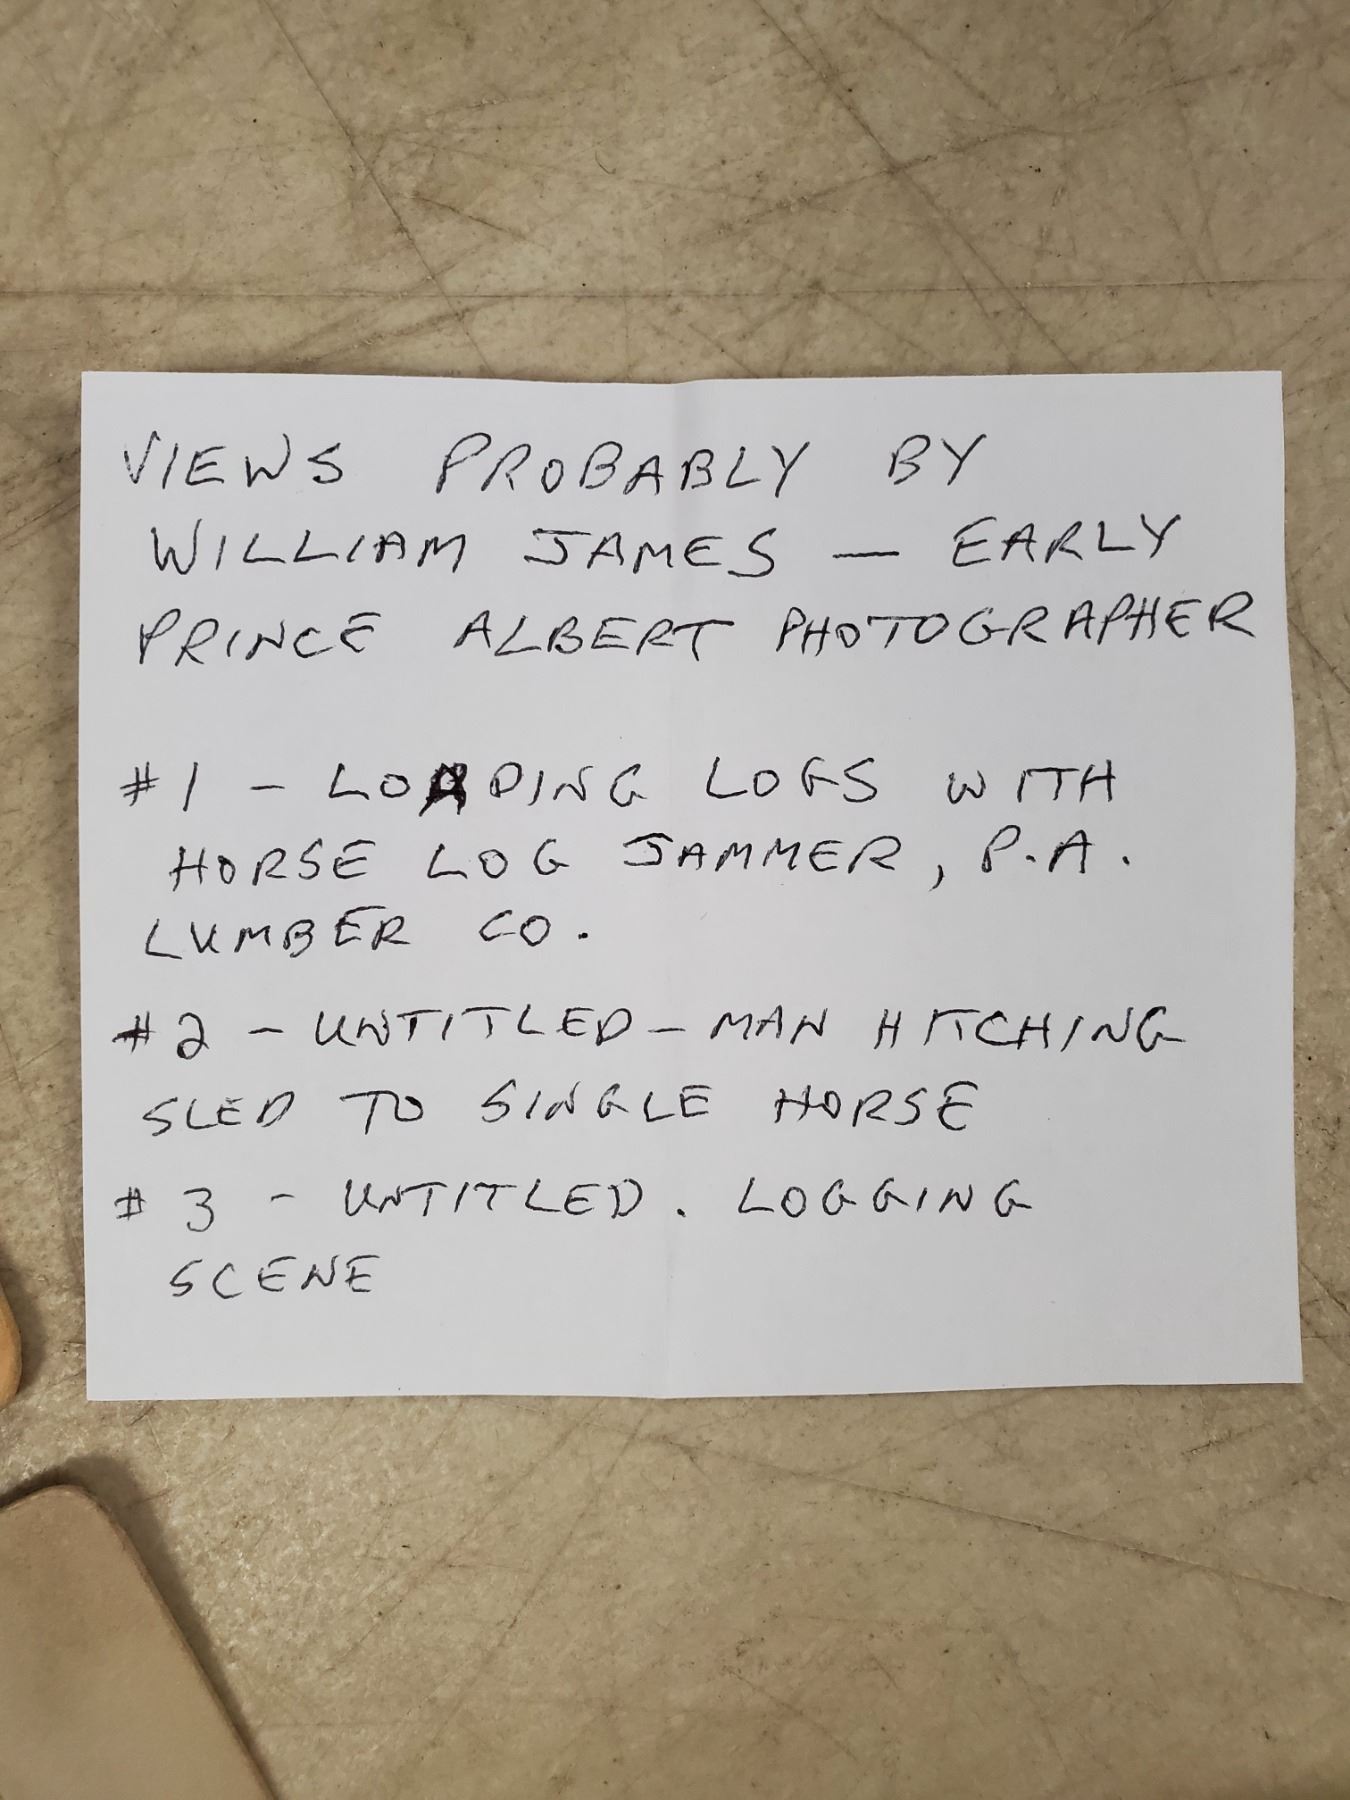 VIEWS PROBABLY BY
WILLIAM JAMES — EARLY
PRINCE ALBERT PHOTOGRAPHER
#1 - LOADING LOGS WITH
HORSE LOG JAMMER, P.A.
LUMBER CO.
#2 - UNTITLED - MAN HITCHING
SLED TO SINGLE HORSE
#3 - UNTITLED. LOGGING
SCENE